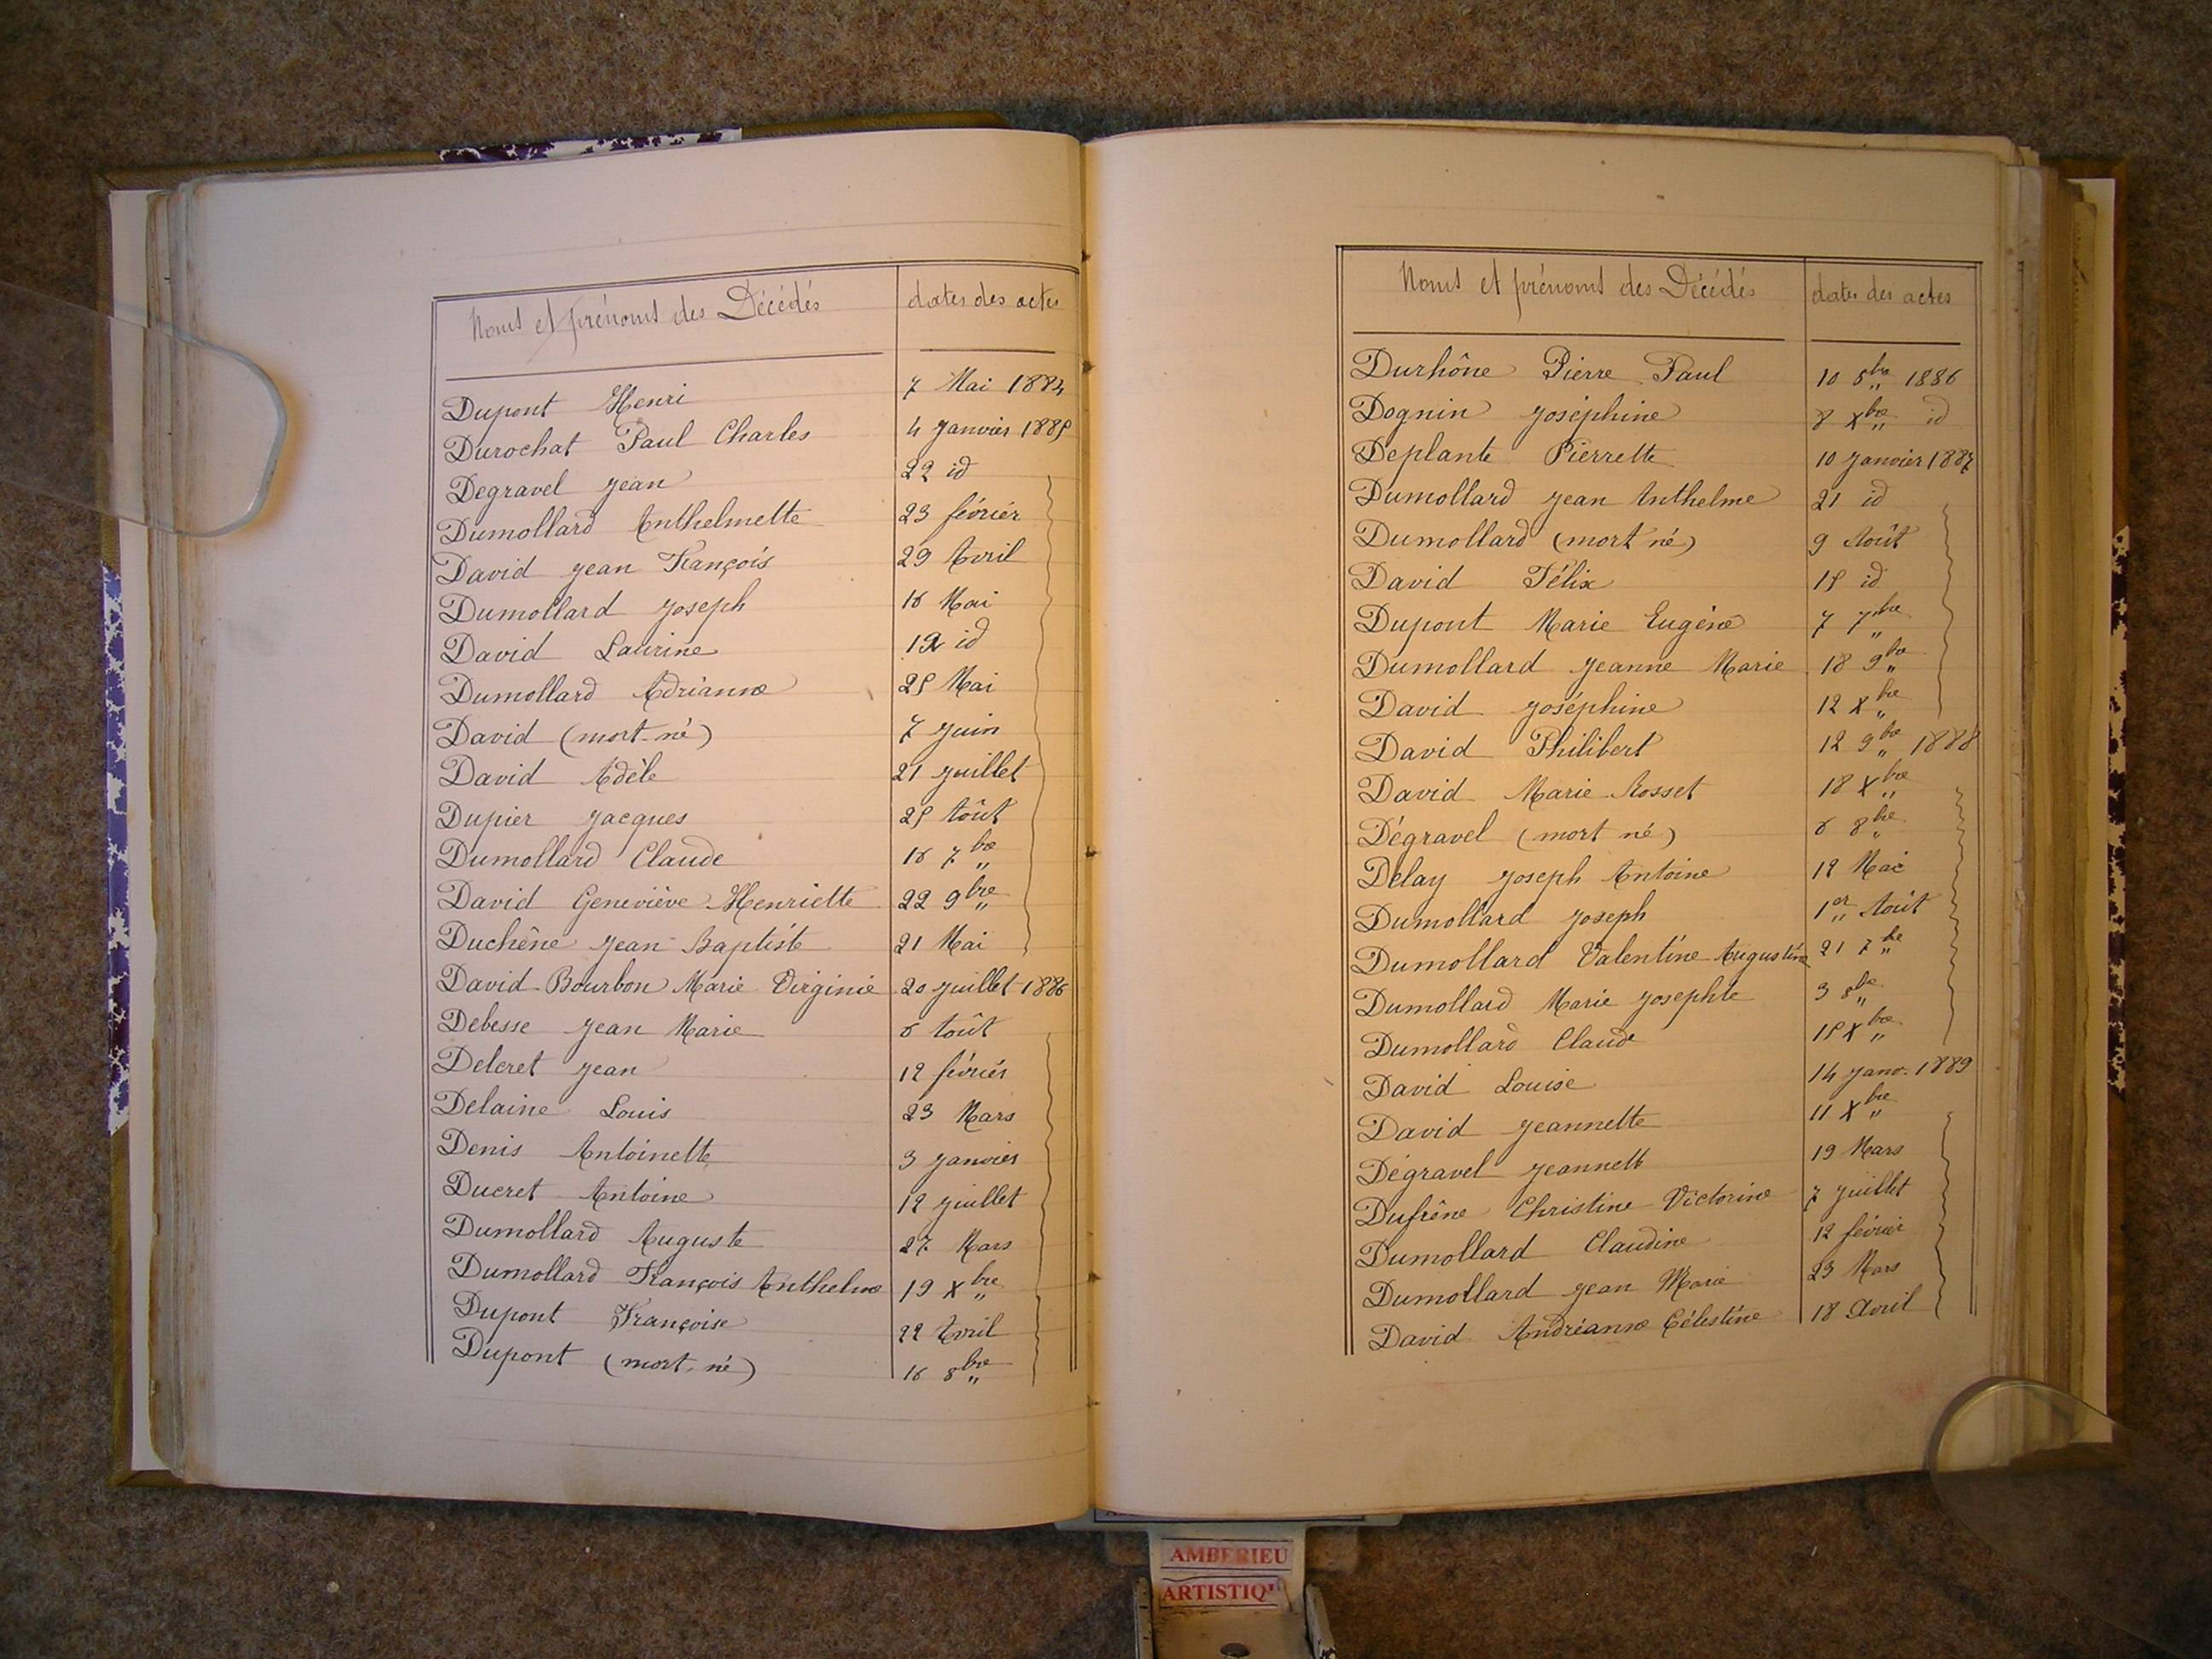 Noms et prénoms des Décédés dates des actes
Dupont Henri 7 Mai 1884
Durochat Paul Charles 4 Janvier 1885
Degravel Jean 22 id
Dumollard Anthelmette 23 février
David Jean François 29 Avril
Dumollard Joseph 16 Mai
David Laurine id
Dumollard Adrianne 25 Mai
David (mort-né) 7 Juin
David Adèle 21 Juillet
Dupier Jacques 25 Aôut
Dumollard Claude 16 7bre
David Geneviève Henriette 22 9bre
Duchêne Jean-Baptiste 21 Mai
David-Bourbon Marie Virginie 20 Juillet 1886
Debesse Jean Marie 6 Aôut
Deleret Jean 12 février
Delaine Louis 23 Mars
Denis Antoinette 3 Janvier
Ducret Antoine 12 Juillet
Dumollard Auguste 27 Mars
Dumollard François Anthelme 19 Xbre
Dupont Françoise 22 Avril
Dupont (mort-né) 16 8bre
Noms et prénoms des Décédés dates des actes
Durhône Pierre Paul 10 1886
Dognin Joséphine 8 Xbre id
Deplante Pierrette 10 Janvier 1887
Dumollard Jean Anthelme 21 id
Dumollard (mort né) 9 Août
David Félix 15 id
Dupont Marie Eugène 7 7bre
Dumollard Jeanne Marie 18 9bre
David Joséphine 12 Xbre
David Philibert 12 9bre 1888
David Marie Rosset 18 Xbre
Dégravel (mort né) 6 8bre
Delay Joseph Antoine 12 Mai
Dumollard Joseph 1er Août
Dumollard Valentine Augustine 21 7bre
Dumollard Marie Josephte 3 8bre
Dumollard Claude 15 Xbre
David Louise 14 Janv. 1889
David Jeannette 11 Xbre
Dégravel Jeannette 19 Mars
Dufrêne Christine Victorine 7 Juillet
Dumollard Claudine 12 février
Dumollard Jean Marie 23 Mars
David Andréanne Célestine 18 Avril
AMBERIEU
ARTISTIQU